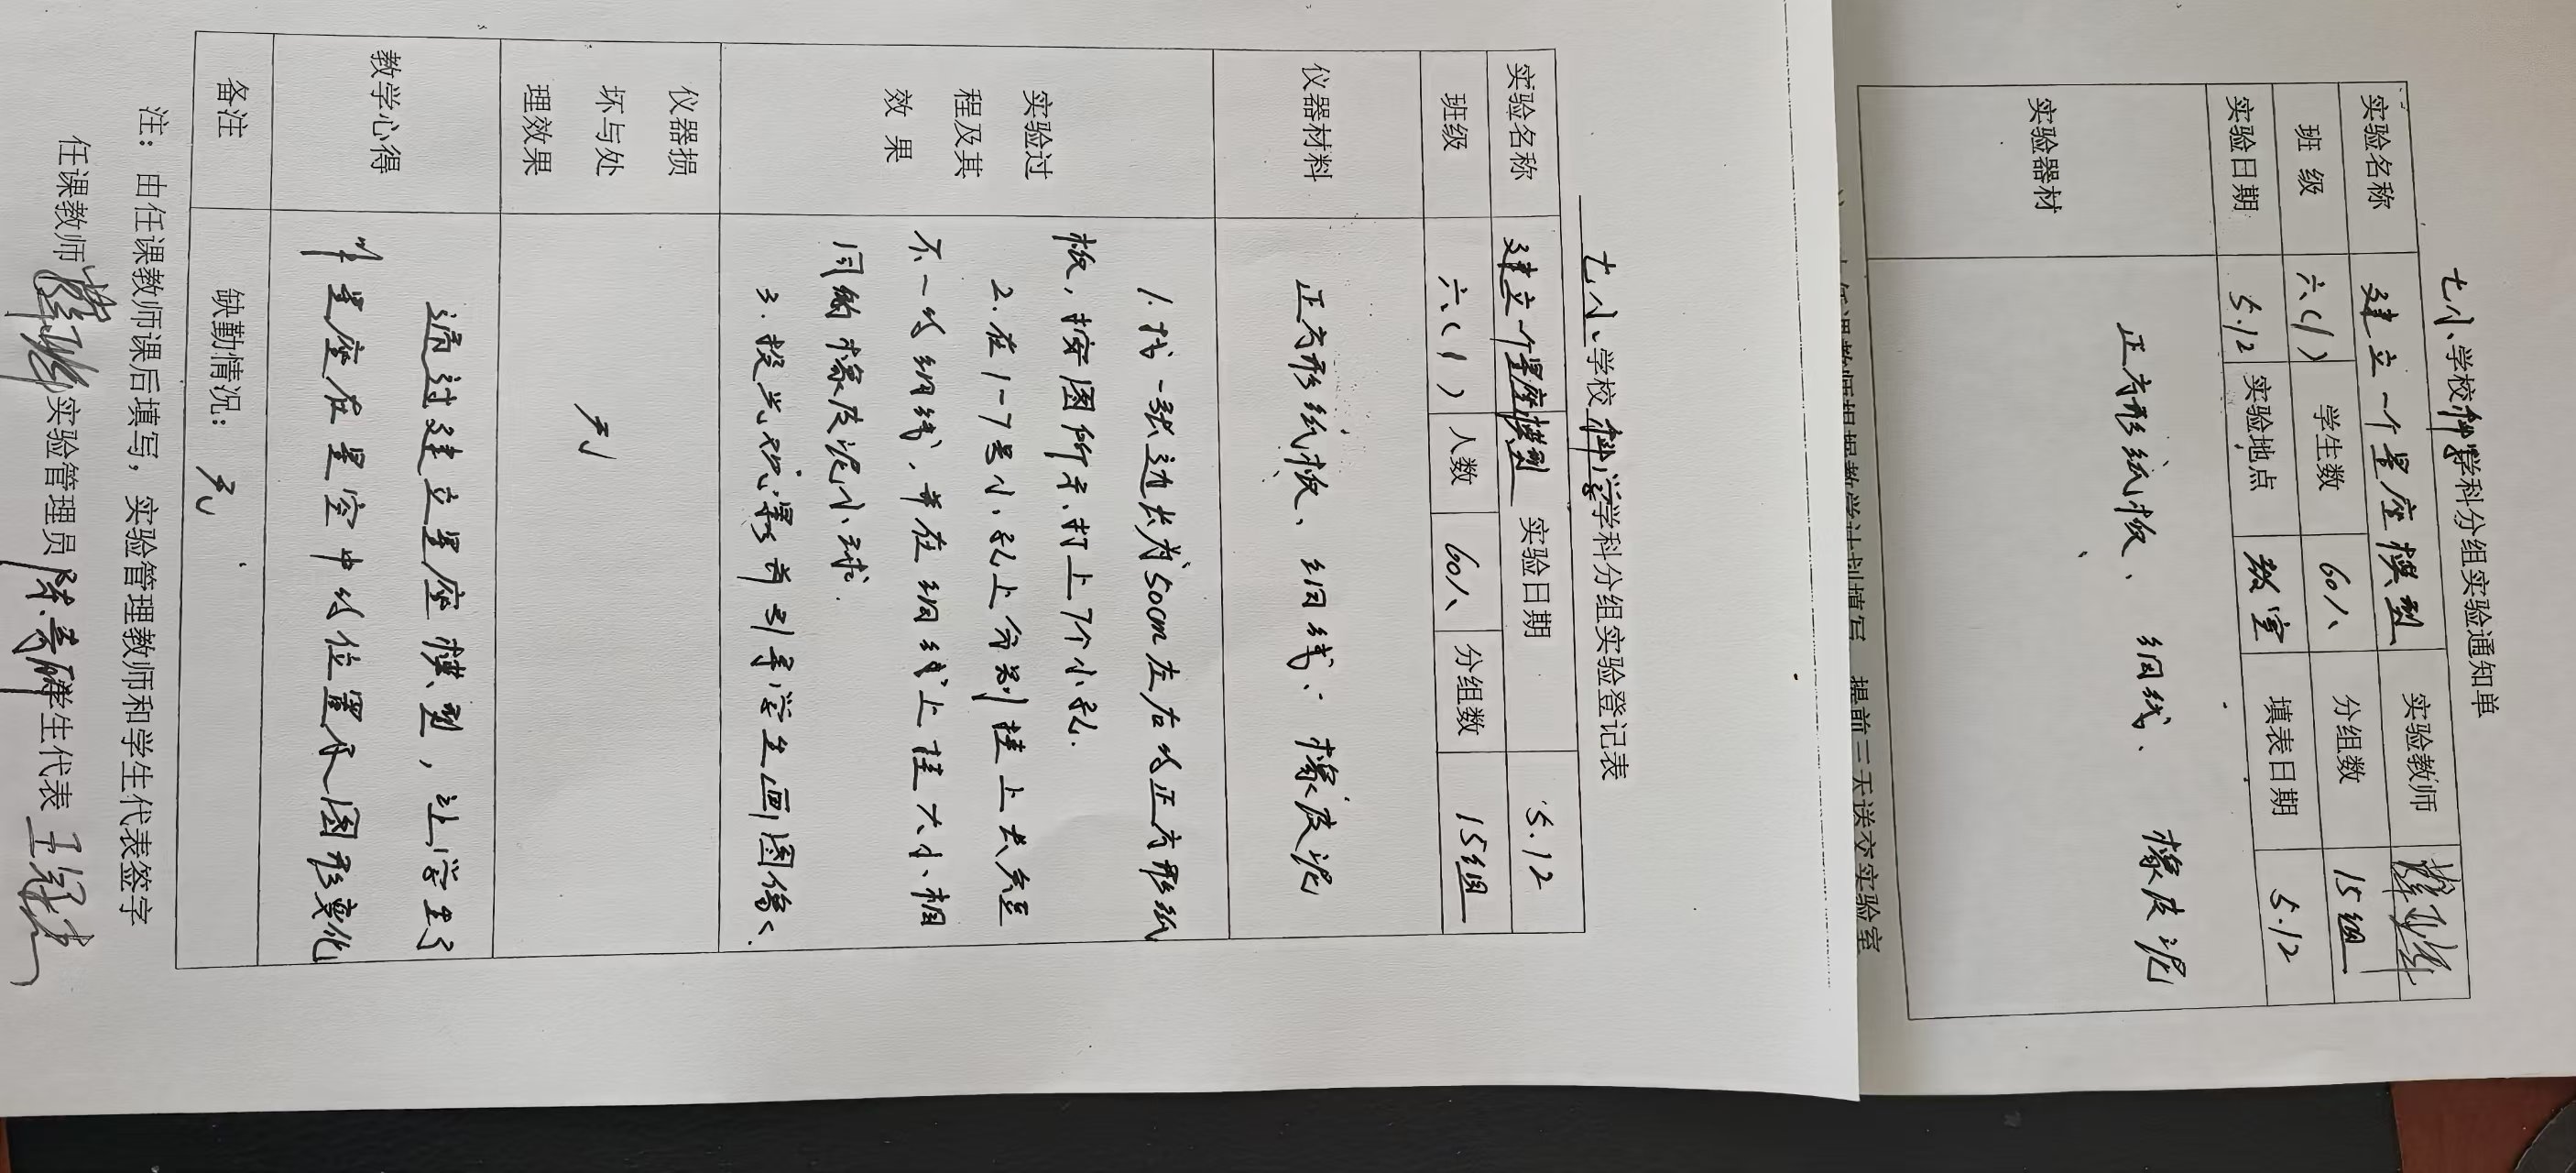 七小学校科学学科分组实验通知单
实验名称 建立一个星座模型 实验教师
班级 六(1) 学生数 60人 分组数 15组
实验日期 5.12 实验地点 教室 填表日期 5.12
实验器材 正方形纸板、细线、橡皮泥
提前三天送交实验室
七小学校科学学科分组实验登记表
实验名称 建立一个星座模型 实验日期 5.12
班级 六(1) 人数 60人 分组数 15组
仪器材料 正方形纸板、细线、橡皮泥
实验过
程及其
效果
1.找一张边长为50cm左右的正方形纸
板,按图所示,打上7个小孔.
2.在1-7号小孔上分别挂上长短
不一的细线,并在细线上挂大小相
同的橡皮泥小球.
3.投光观影并引导学生画图像.
仪器损
坏与处
理效果
无
教学心得
通过建立星座模型,让学生了
解星座在星空中的位置及图形变化
备注 缺勤情况: 无
注:由任课教师课后填写,实验管理教师和学生代表签字
任课教师 实验管理员 学生代表